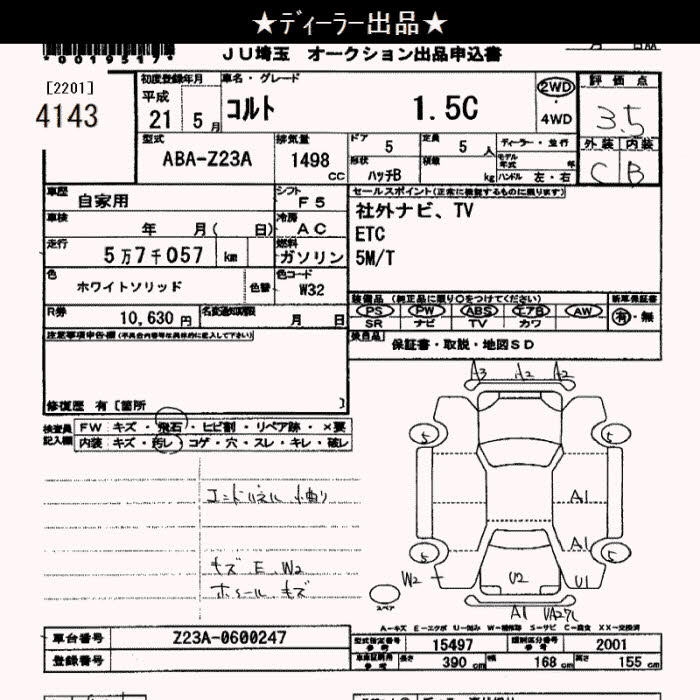 ★ディーラー出品★
*0019517*
JU埼玉 オークション出品申込書
[2201]
4143
初度登録年月
平成
21 5 月
車名・グレード
コルト 1.5C
2WD
・
4WD
評価点
3.5
外装 内装
C B
型式
ABA-Z23A
排気量
1498
CC
ドア
5
定員
5 人
形状
ハッチB
積載
kg
ディーラー・並行
モデル年式 年
ハンドル 左・右
車歴
自家用
シフト
F5
車検
年 月( 日)
冷房
AC
走行
5万7千057 km
燃料
ガソリン
色
ホワイトソリッド
色替
色コード
W32
R券
10,630 円
名変通知期限
月 日
セールスポイント(正常に機能するものに限ります)
社外ナビ、TV
ETC
5M/T
装備品 (純正品に限り○をつけてください)
PS PW ABS エアB AW
SR ナビ TV カワ
新車保証書
有・無
後日品
保証書・取説・地図SD
注意事項申告欄(不具合内容等は具体的に記入して下さい)
修復歴 有 [箇所 ]
検査員
記入欄
FW キズ・飛石・ヒビ割・リペア跡・×要
内装 キズ・汚レ・コゲ・穴・スレ・キレ・破レ
キズ E、W2
ホイール キズ
A3 A2 A2
5 5
A1
A1
5 5
W2 U2 U1
スペア
A1
A-キズ E-エクボ U-凹み W-補修跡 S-サビ C-腐食 XX-交換済
車台番号
Z23A-0600247
登録番号
型式指定番号
参考
15497
類別区分番号
参考
2001
車庫証明用
参考
長さ 390 cm
幅 168 cm
高さ 155 cm